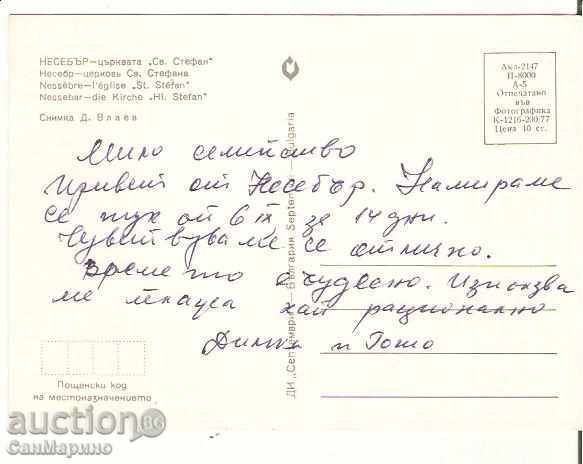 НЕСЕБЪР—църквата „Св. Стефан"
Несебр—церковь Св. Стефана
Nessèbre—l'église „St. Stéfan"
Nessebar—die Kirche „Hl. Stefan"
Снимка Д. Влаев
Акл-2147
П-8000
А-5
Отпечатано
във
Фотографика
К-1216-200/77
Цена 10 ст.
ДИ „Септември" — България Septemvri — Bulgaria
Мило семейство
Привет от Несебър. Намираме
се тук от 6 IX за 14 дни.
Чувствуваме се отлично.
Времето е чудесно. Използва
ме най рационално
и Гошо
Пощенски код
на местоназначението
auction BG
СанМарино